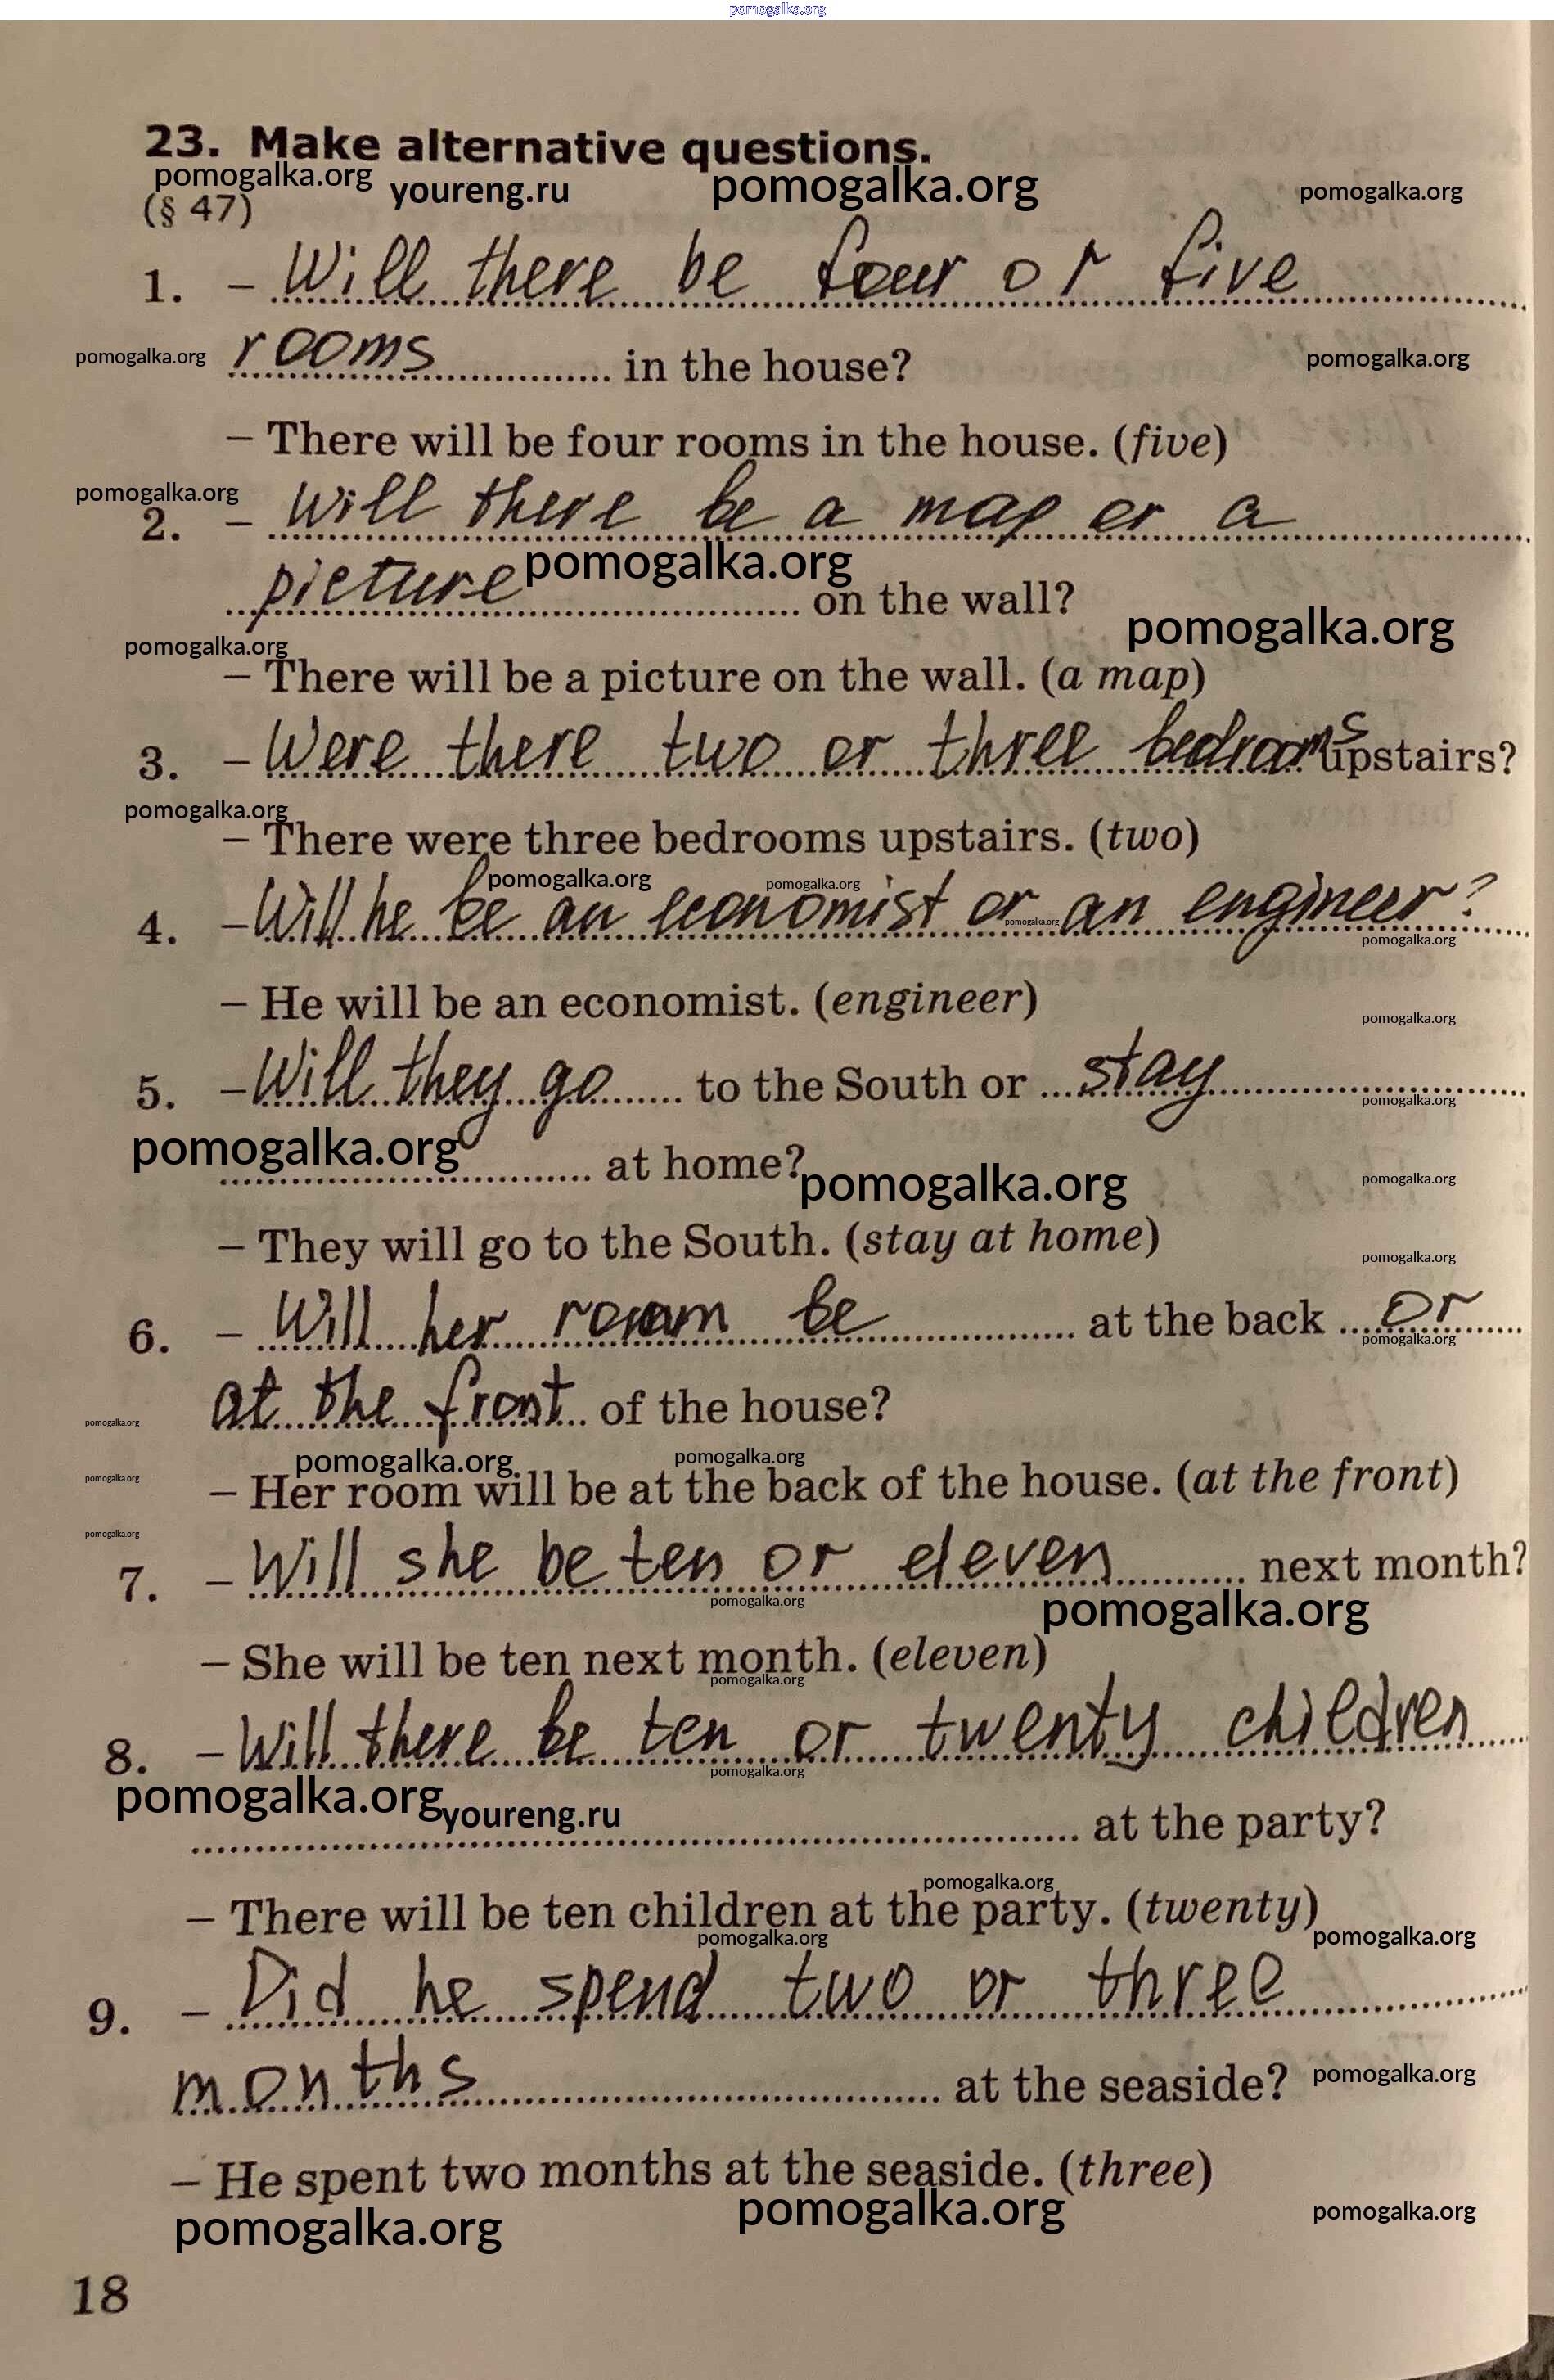 pomogalka.org
23. Make alternative questions.
pomogalka.org youreng.ru pomogalka.org pomogalka.org
(§ 47)
1. – Will there be four or five
pomogalka.org rooms in the house? pomogalka.org
– There will be four rooms in the house. (five)
pomogalka.org
2. – Will there be a map or a
picture pomogalka.org on the wall?
pomogalka.org
pomogalka.org
– There will be a picture on the wall. (a map)
3. – Were there two or three bedrooms upstairs?
pomogalka.org
– There were three bedrooms upstairs. (two)
pomogalka.org pomogalka.org
4. – Will he be an economist or an engineer?
pomogalka.org
pomogalka.org
– He will be an economist. (engineer)
pomogalka.org
5. – Will they go to the South or stay
pomogalka.org
pomogalka.org at home? pomogalka.org pomogalka.org
– They will go to the South. (stay at home)
pomogalka.org
6. – Will her room be at the back or
pomogalka.org
at the front of the house?
pomogalka.org
pomogalka.org pomogalka.org
pomogalka.org – Her room will be at the back of the house. (at the front)
pomogalka.org
7. – Will she be ten or eleven next month?
pomogalka.org pomogalka.org
– She will be ten next month. (eleven)
pomogalka.org
8. – Will there be ten or twenty children
pomogalka.org
pomogalka.org youreng.ru at the party?
pomogalka.org
– There will be ten children at the party. (twenty)
pomogalka.org pomogalka.org
9. – Did he spend two or three
months at the seaside? pomogalka.org
– He spent two months at the seaside. (three)
pomogalka.org pomogalka.org pomogalka.org
18